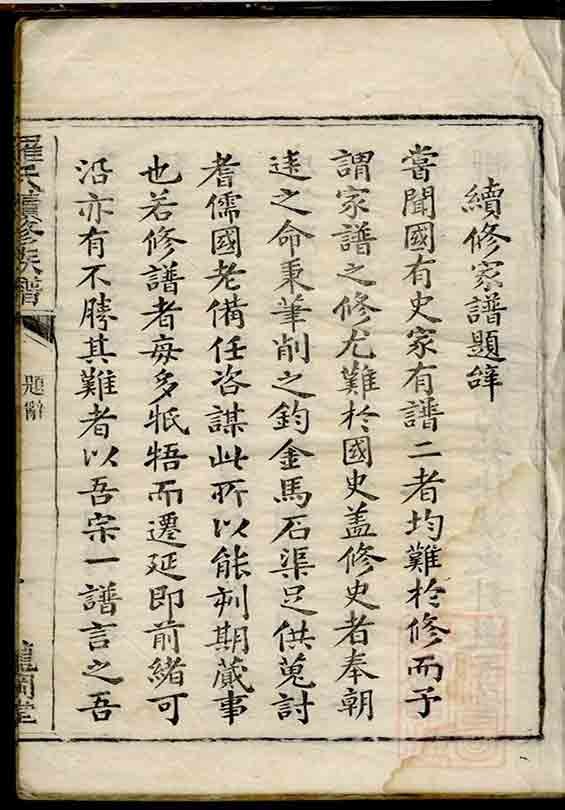 續修家譜題辭
嘗聞國有史家有譜二者均難於修而予
謂家譜之修尤難於國史盖修史者奉朝
廷之命秉筆削之鈞金馬石渠足供蒐討
耆儒國老備任咨謀此所以能刻期蕆事
也若修譜者每多牴牾而遷延即前緒可
沿亦有不勝其難者以吾宗一譜言之吾
羅氏續修族譜
題辭